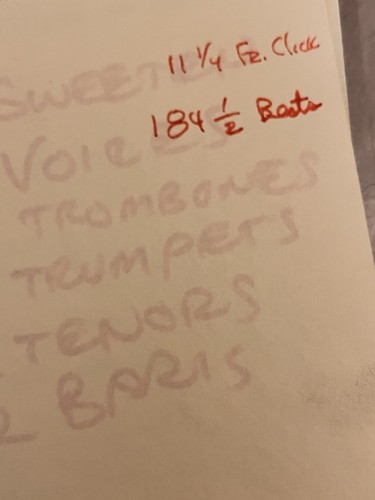 11 1/4 Fr. Click
184 1/2 Beats
SWEETE
VOICES
TROMBONES
TRUMPETS
TENORS
2 BARIS